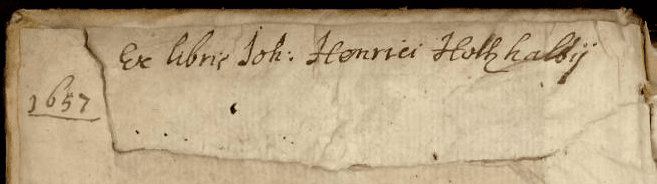 Ex libris Joh: Henrici Holtzhalbij
1657